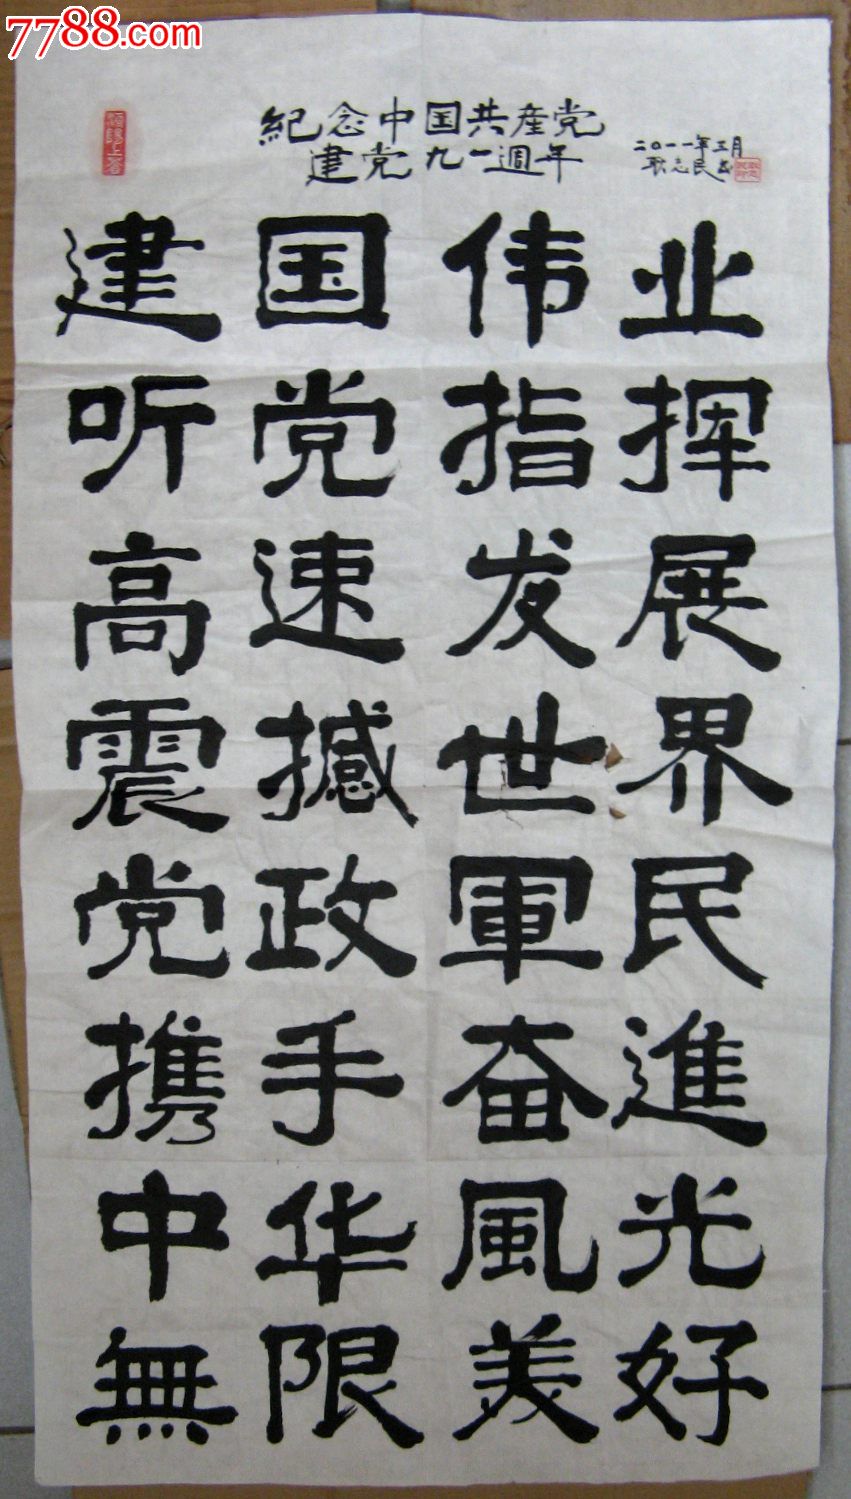 7788.com
紀念中国共産党
建党九一週年
二〇一一年三月
耿志民书
建国伟业
听党指挥
高速发展
震撼世界
党政軍民
携手奋進
中华風光
無限美好